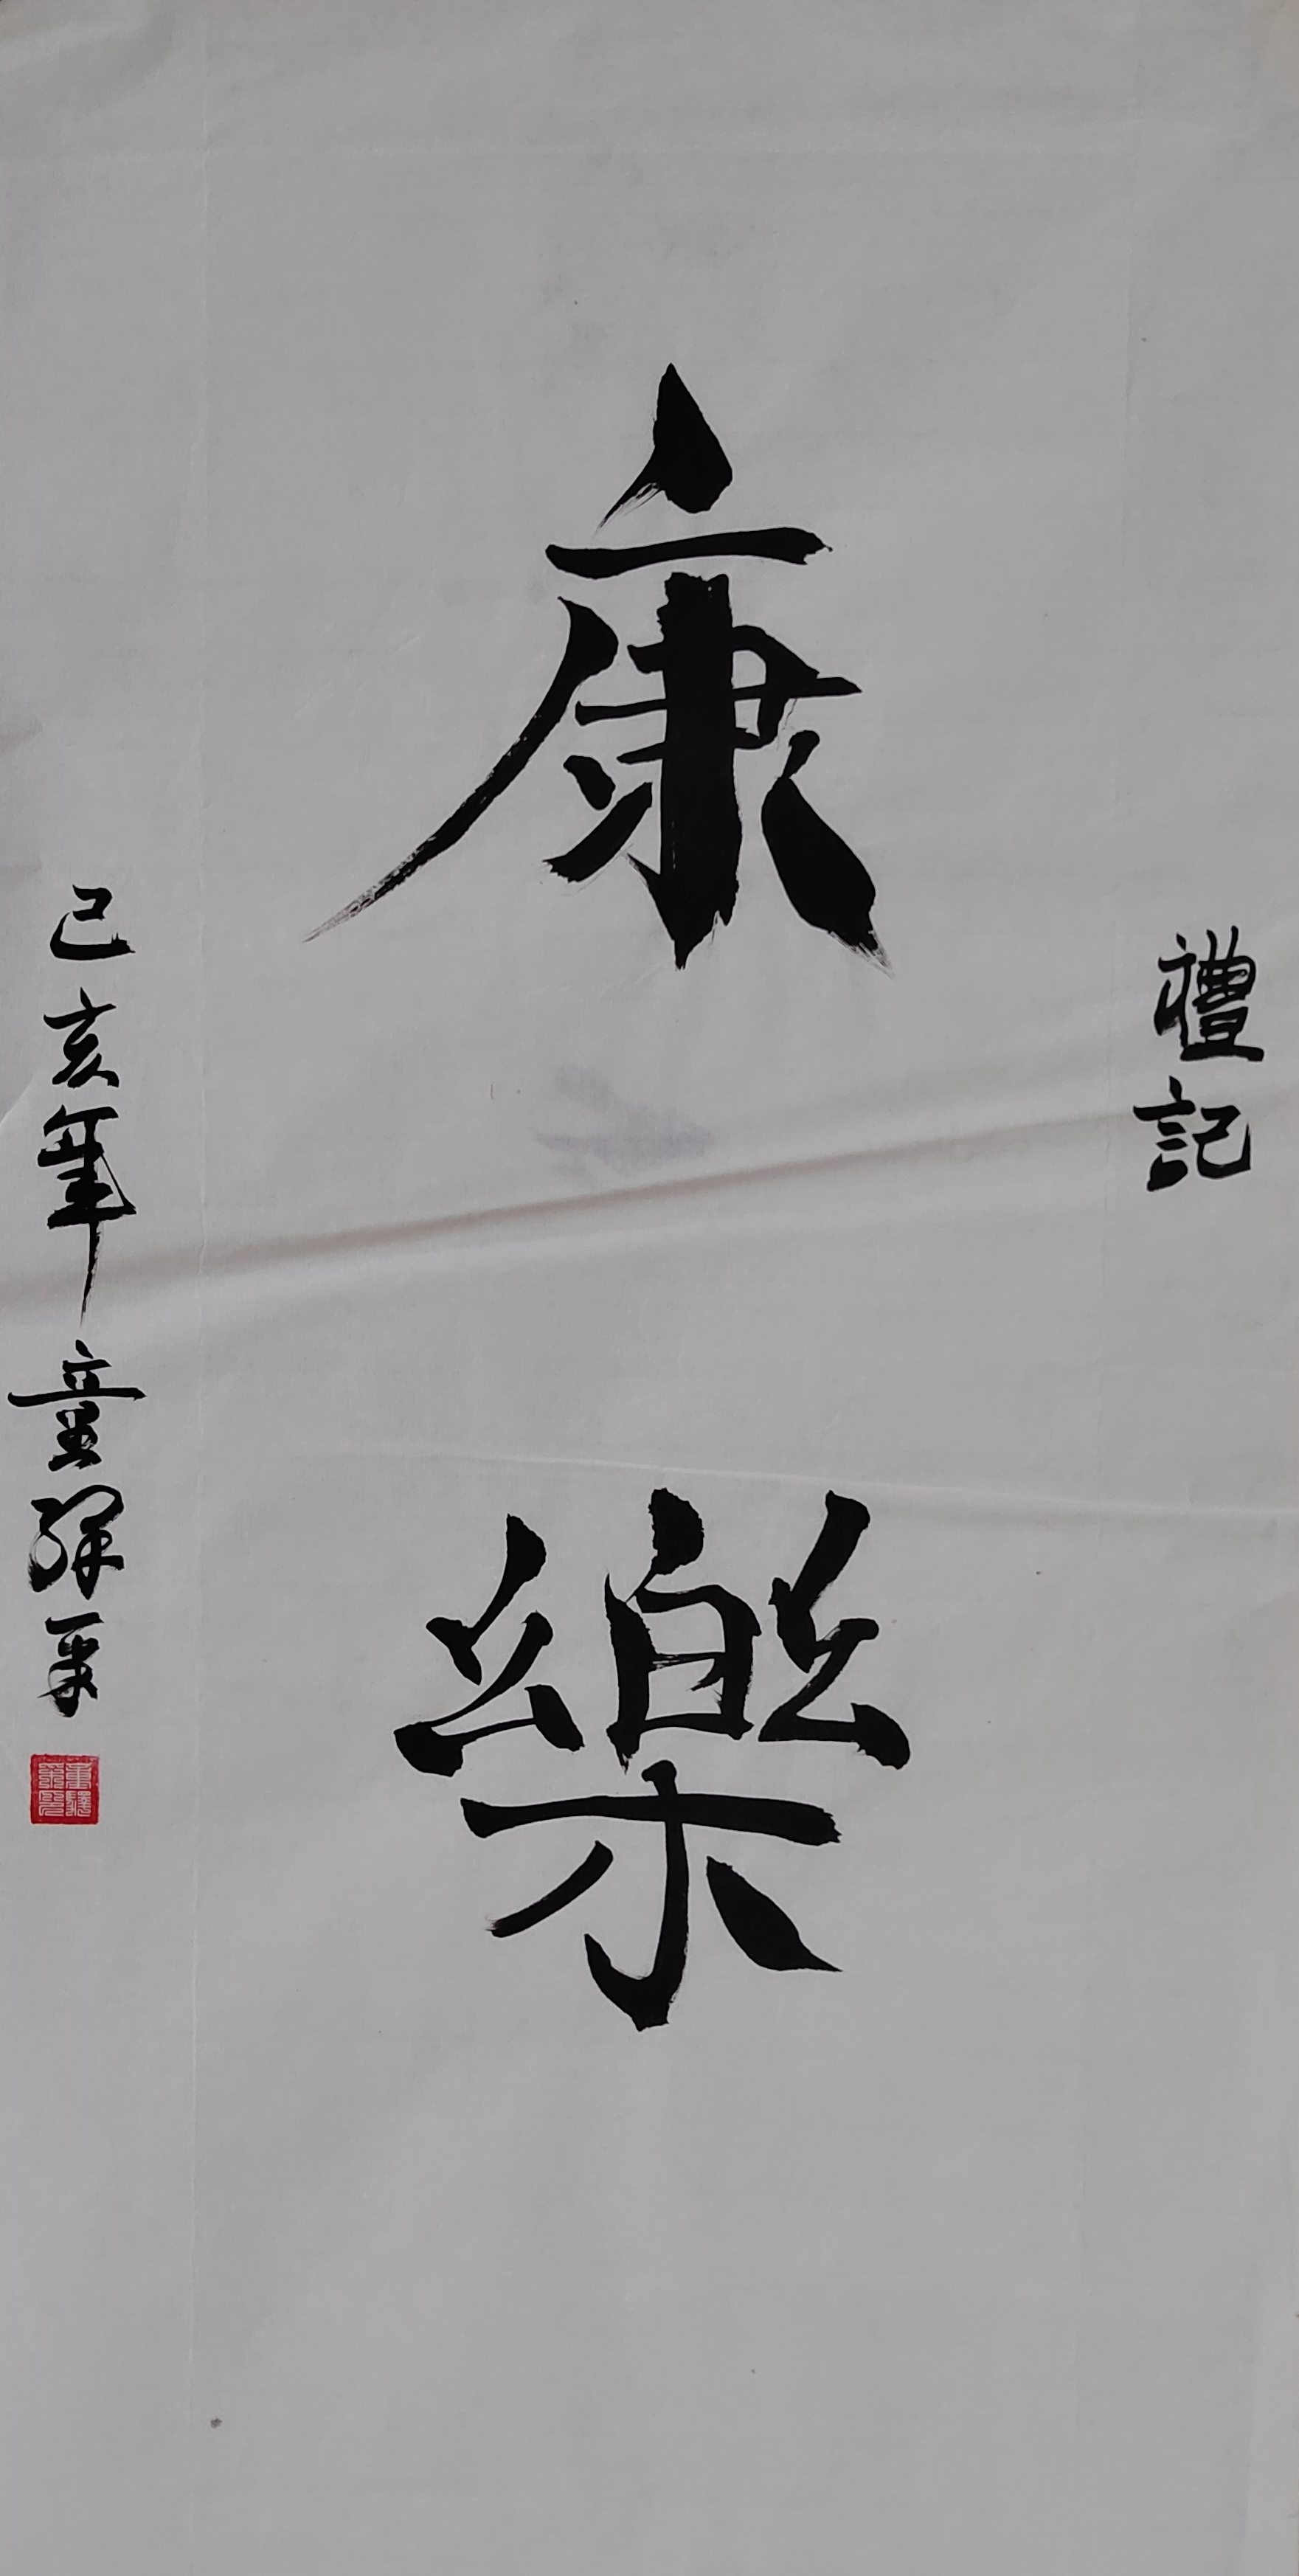 禮記
康樂
己亥年童繹第